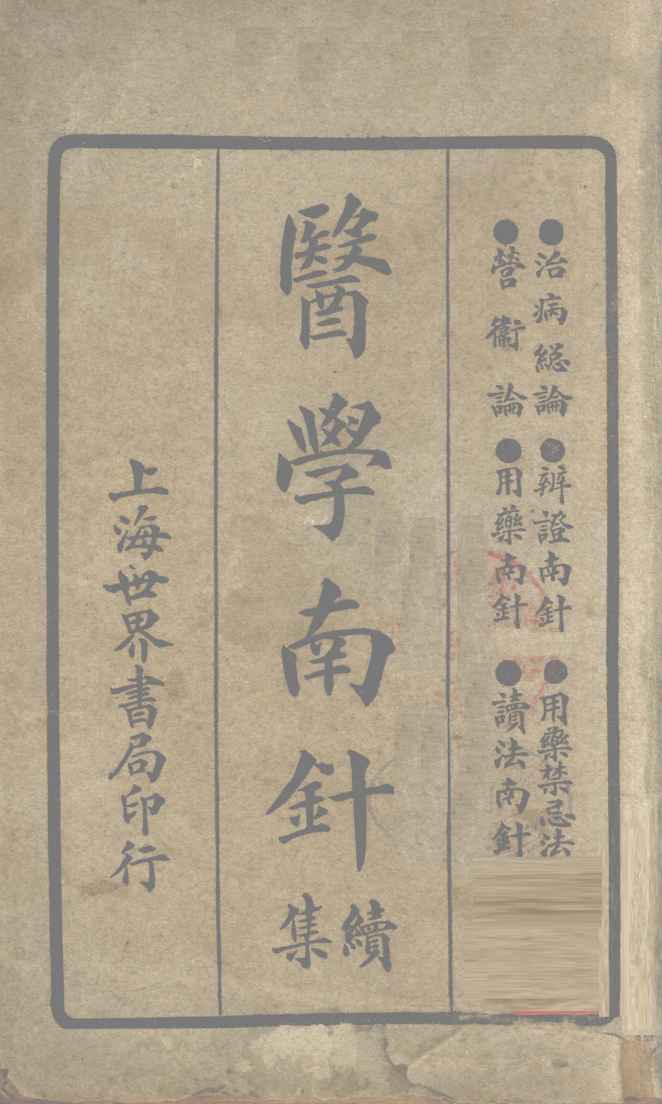 ●治病総論●辨證南針●用藥禁忌法
●營衞論●用藥南針●讀法南針
醫學南針
續集
上海世界書局印行